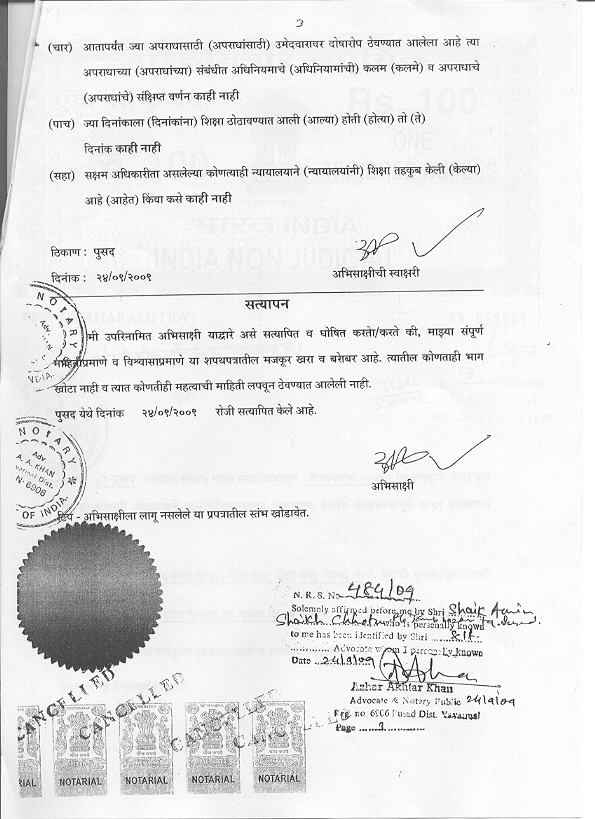 3
(चार) आतापर्यंत ज्या अपराधासाठी (अपराधांसाठी) उमेदवारावर दोषारोप ठेवण्यात आलेला आहे त्या
अपराधाच्या (अपराधांच्या) संबंधीत अधिनियमाचे (अधिनियमांची) कलम (कलमे) व अपराधाचे
(अपराधांचे) संक्षिप्त वर्णन काही नाही
(पाच) ज्या दिनांकाला (दिनांकांना) शिक्षा ठोठावण्यात आली (आल्या) होती (होत्या) तो (ते)
दिनांक काही नाही
(सहा) सक्षम अधिकारीता असलेल्या कोणत्याही न्यायालयाने (न्यायालयांनी) शिक्षा तहकुब केली (केल्या)
आहे (आहेत) किंवा कसे काही नाही
भारत INDIA
INDIA NON JUDICIAL
ठिकाण : पुसद
दिनांक : २४/०९/२००९
अभिसाक्षीची स्वाक्षरी
सत्यापन
मी उपरिनामित अभिसाक्षी याद्वारे असे सत्यापित व घोषित करतो/करते की, माझ्या संपूर्ण
माहितीप्रमाणे व विश्वासाप्रमाणे या शपथपत्रातील मजकूर खरा व बरोबर आहे. त्यातील कोणताही भाग
खोटा नाही व त्यात कोणतीही महत्वाची माहिती लपवून ठेवण्यात आलेली नाही.
पुसद येथे दिनांक २४/०९/२००९ रोजी सत्यापित केले आहे.
अभिसाक्षी
NOTARY
Adv
A. A. KHAN
N-6906
OF INDIA
टिप - अभिसाक्षीला लागू नसलेले या प्रपत्रातील स्तंभ खोडावेत.
N. R. S. No 484/09
Solemnly affirmed before me by Shri Shaik Amin
Shaikh Chhotu who is personally known
to me has been identified by Shri
Advocate whom I personally know
Date 24/9/09
Azhar Akhtar Khan
Advocate & Notary Public 24/9/09
Reg. no. 6906 Pusad Dist. Yavatmal
Page 3
CANCELLED
CANCELLED
CANCELLED
NOTARIAL
NOTARIAL
NOTARIAL
NOTARIAL